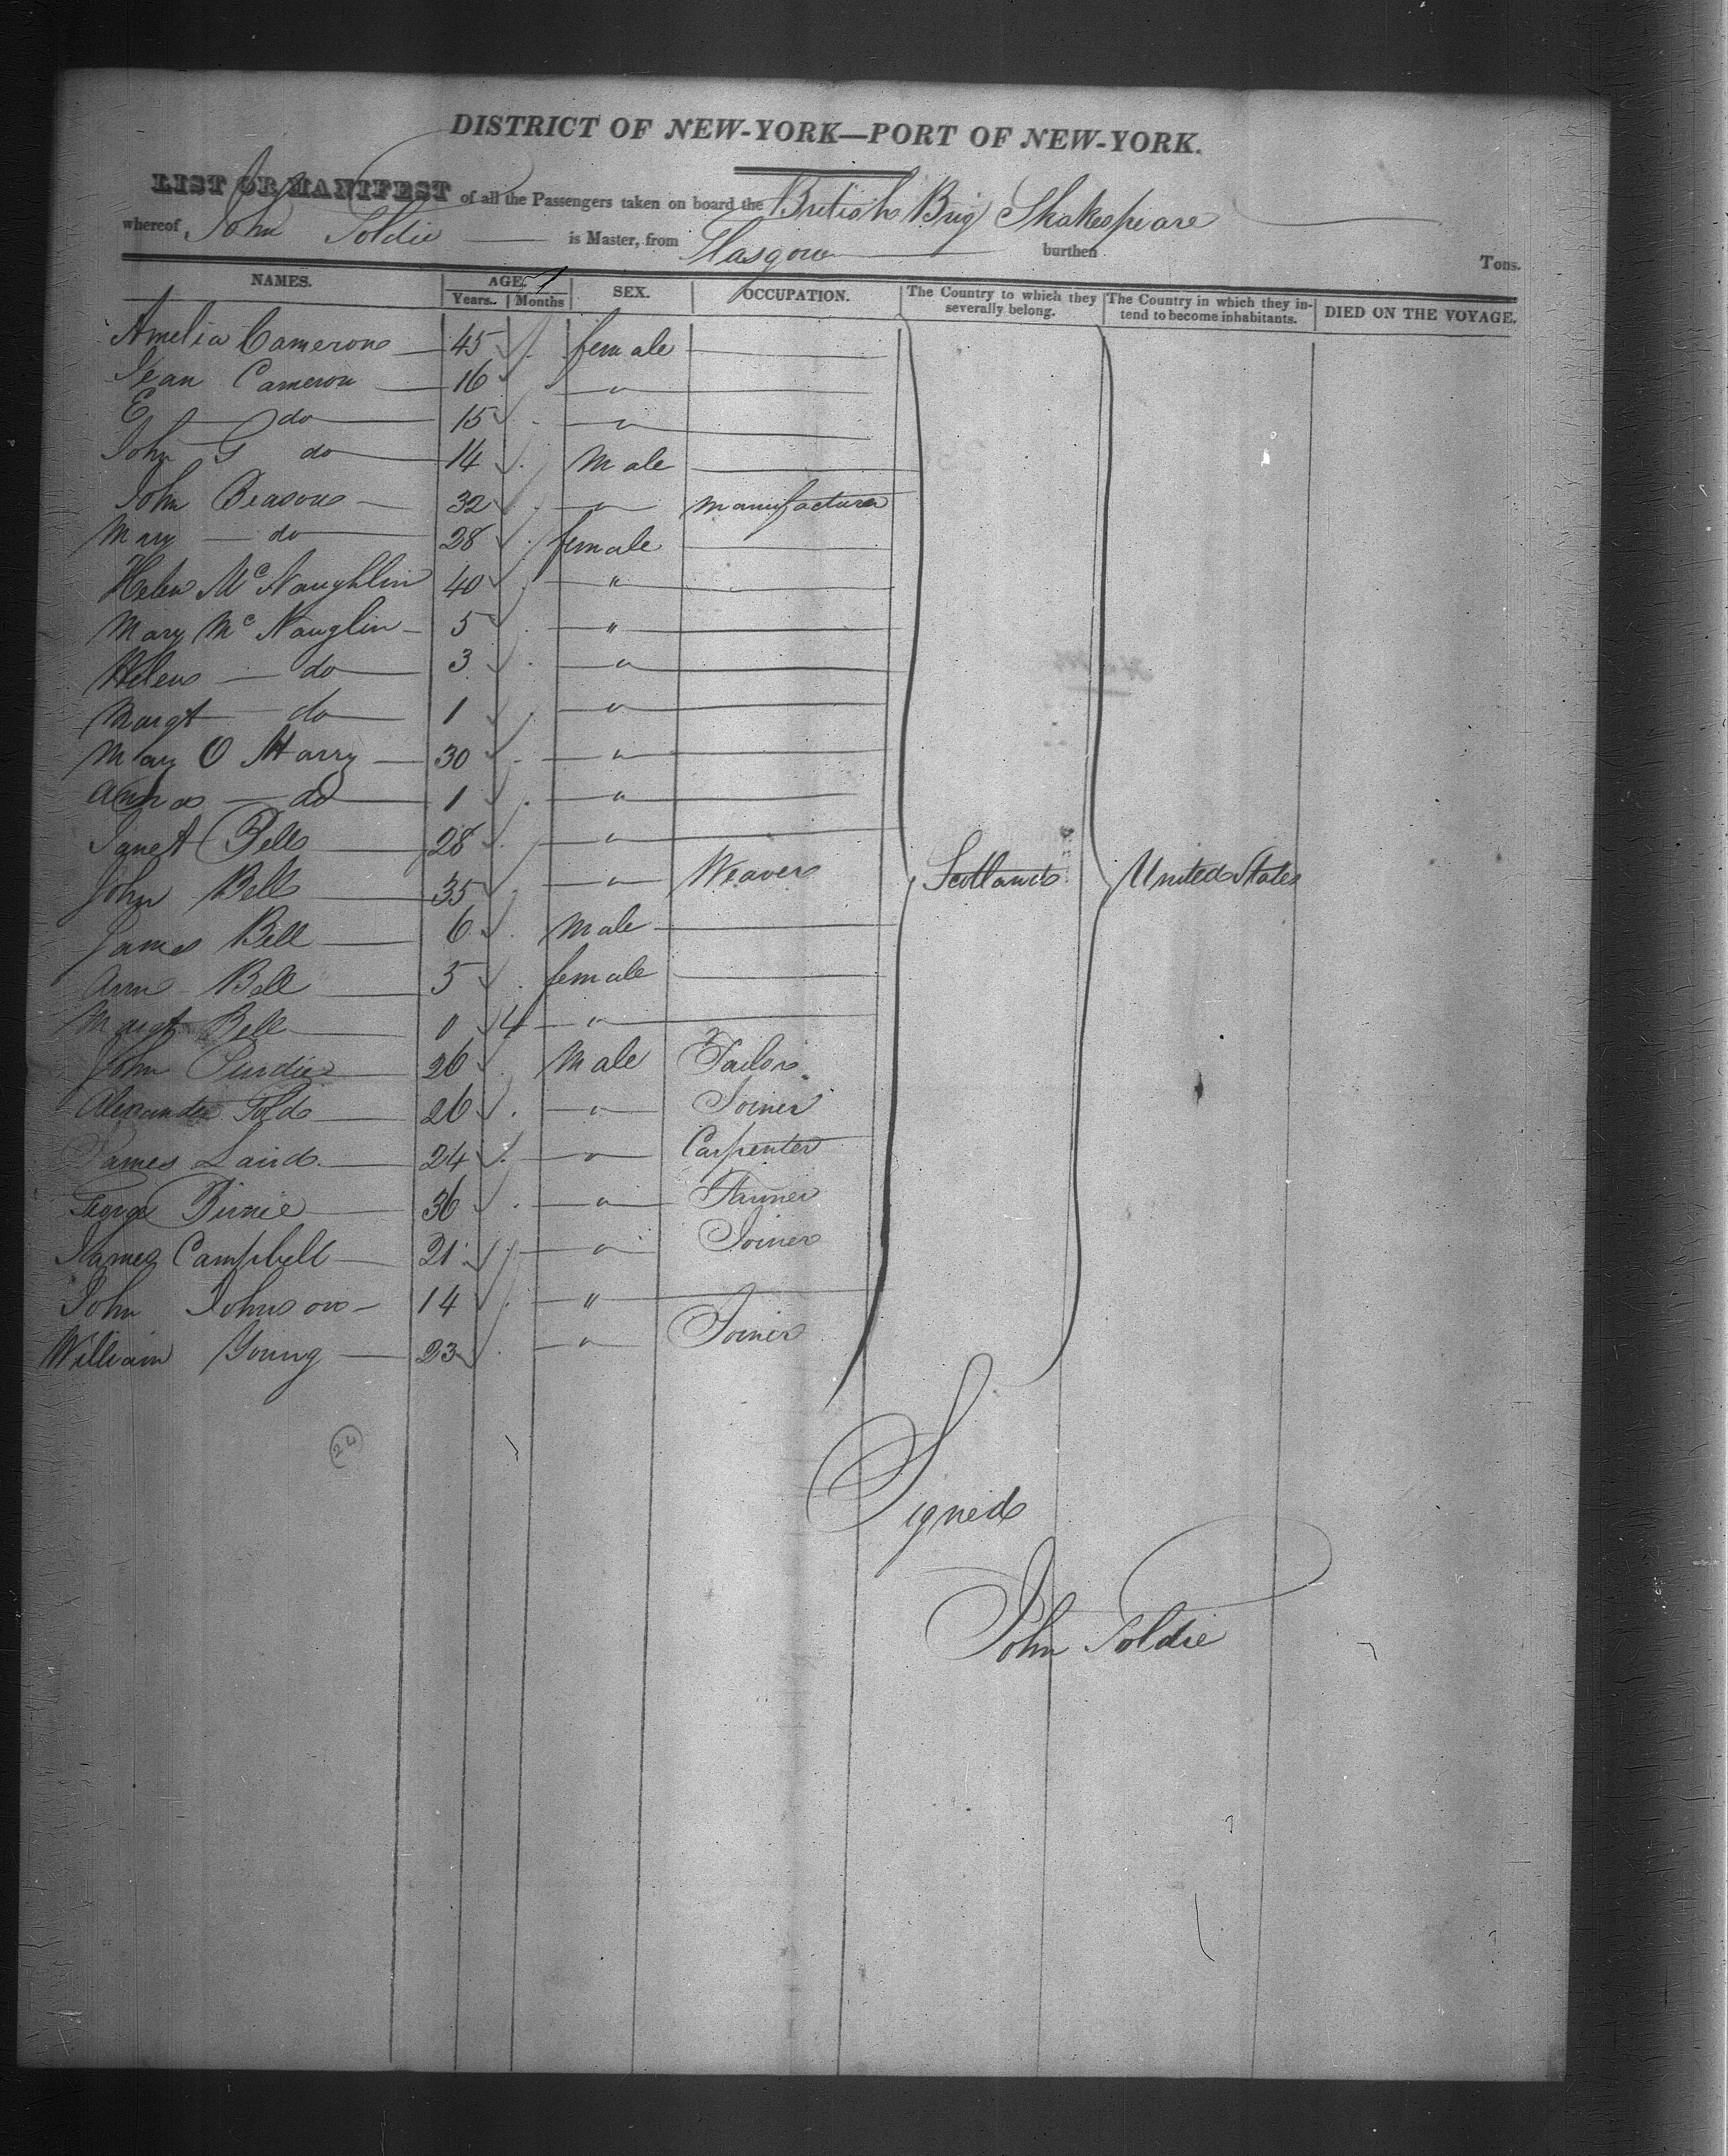 DISTRICT OF NEW-YORK—PORT OF NEW-YORK.
LIST OR MANIFEST of all the Passengers taken on board the British Brig Shakespeare
whereof John Goldie is Master, from Glasgow burthen Tons.
NAMES. AGE. SEX. OCCUPATION. The Country to which they severally belong. The Country in which they intend to become inhabitants. DIED ON THE VOYAGE.
Years. Months
Amelia Cameron 45 female
Jean Cameron 16 "
E do 15 "
John G do 14 Male
John 32 " manufacturer
Mary do 28 female
Helen Mc Naughlin 40 "
Mary Mc Nauglin 5 "
Helen do 3 "
Margt do 1 "
Mary O Harry 30 "
do 1 "
Janet Bell 28 "
John Bell 35 " Weaver Scotland United States
James Bell 6 Male
Ann Bell 5 female
Margt Bell 0 4 "
John Purdie 26 Male Tailor
Alexander 26 " Joiner
James Laird 24 " Carpenter
George Birnie 36 "
James Campbell 21 " Joiner
John Johnson 14 "
William Young 23 " Joiner
24
Signed
John Goldie